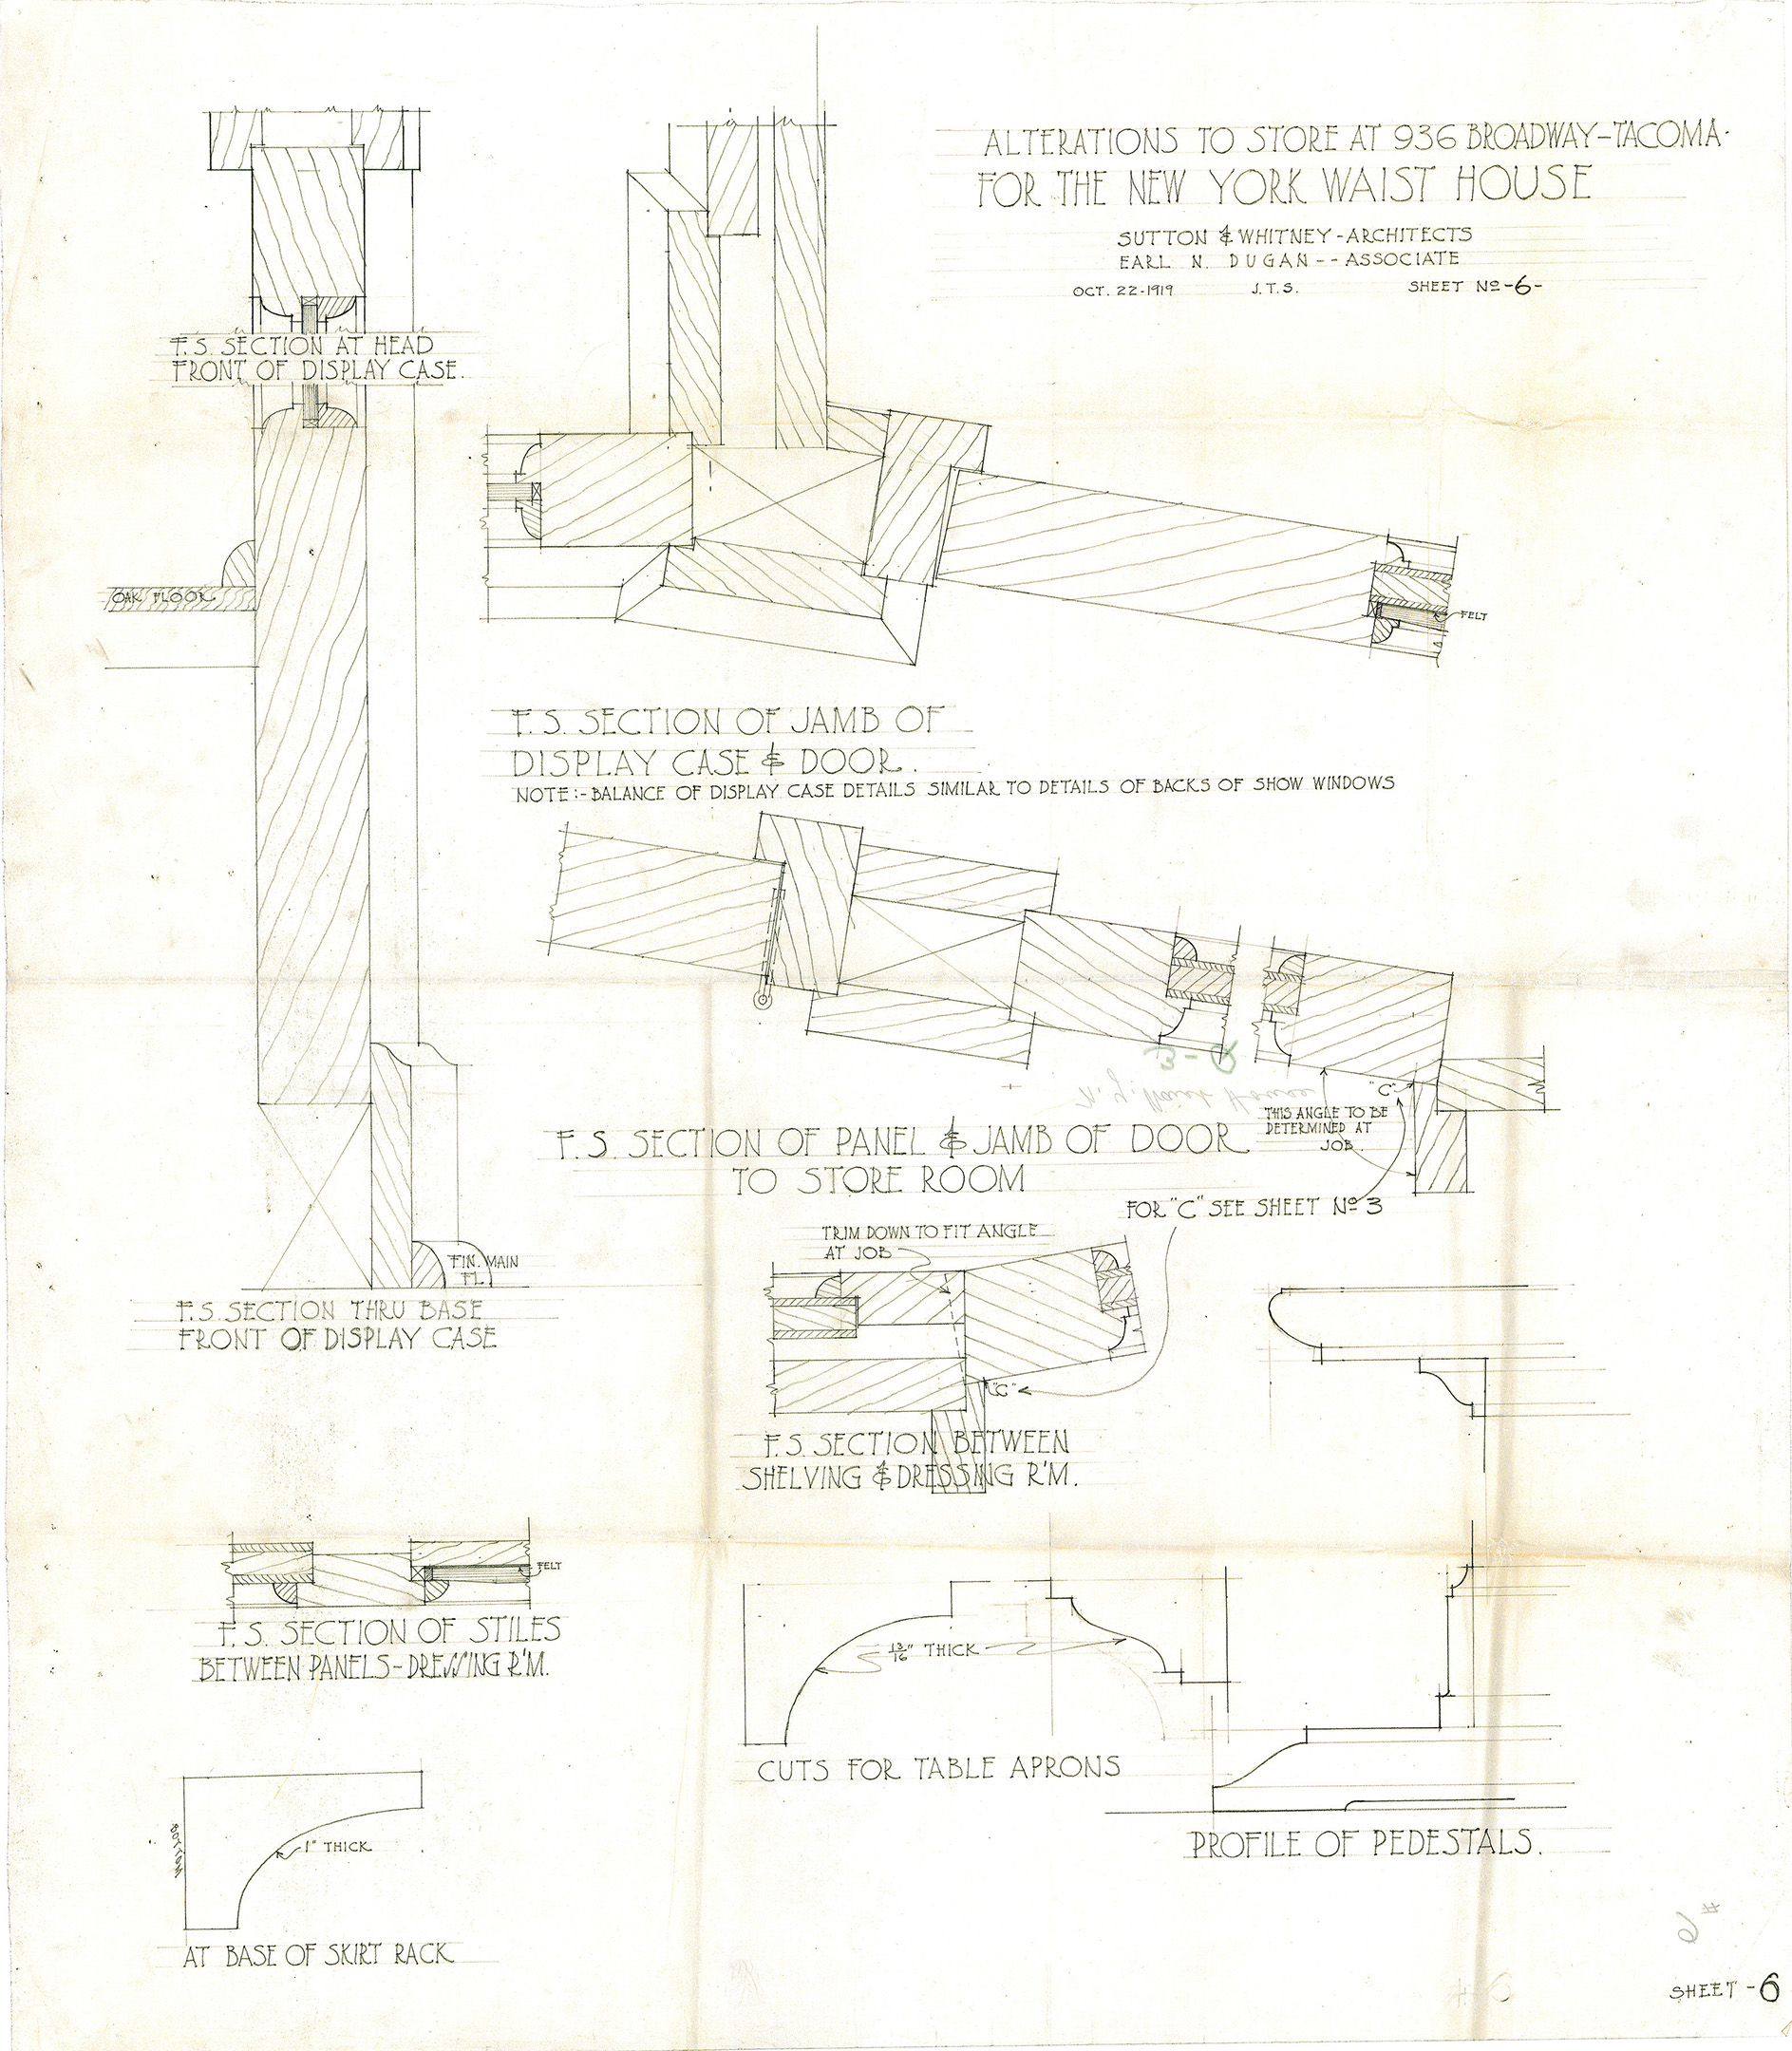 ALTERATIONS TO STORE AT 936 BROADWAY-TACOMA-
FOR THE NEW YORK WAIST HOUSE
SUTTON & WHITNEY-ARCHITECTS
EARL N. DUGAN--ASSOCIATE
OCT. 22-1919 J.T.S. SHEET No-6-
F.S. SECTION AT HEAD
FRONT OF DISPLAY CASE.
OAK FLOOR
FELT
F.S. SECTION OF JAMB OF
DISPLAY CASE & DOOR.
NOTE:-BALANCE OF DISPLAY CASE DETAILS SIMILAR TO DETAILS OF BACKS OF SHOW WINDOWS
3-Q
N.Y. Waist House
"C"
THIS ANGLE TO BE
DETERMINED AT
JOB.
F.S. SECTION OF PANEL & JAMB OF DOOR
TO STORE ROOM
FOR "C" SEE SHEET No 3
TRIM DOWN TO FIT ANGLE
AT JOB
FIN. MAIN
FL.
F.S. SECTION THRU BASE
FRONT OF DISPLAY CASE
"C"
F.S. SECTION BETWEEN
SHELVING & DRESSING R'M.
FELT
F.S. SECTION OF STILES
BETWEEN PANELS-DRESSING R'M.
13/16" THICK
CUTS FOR TABLE APRONS
PROFILE OF PEDESTALS.
BOTTOM
1" THICK
AT BASE OF SKIRT RACK
#6
SHEET-6